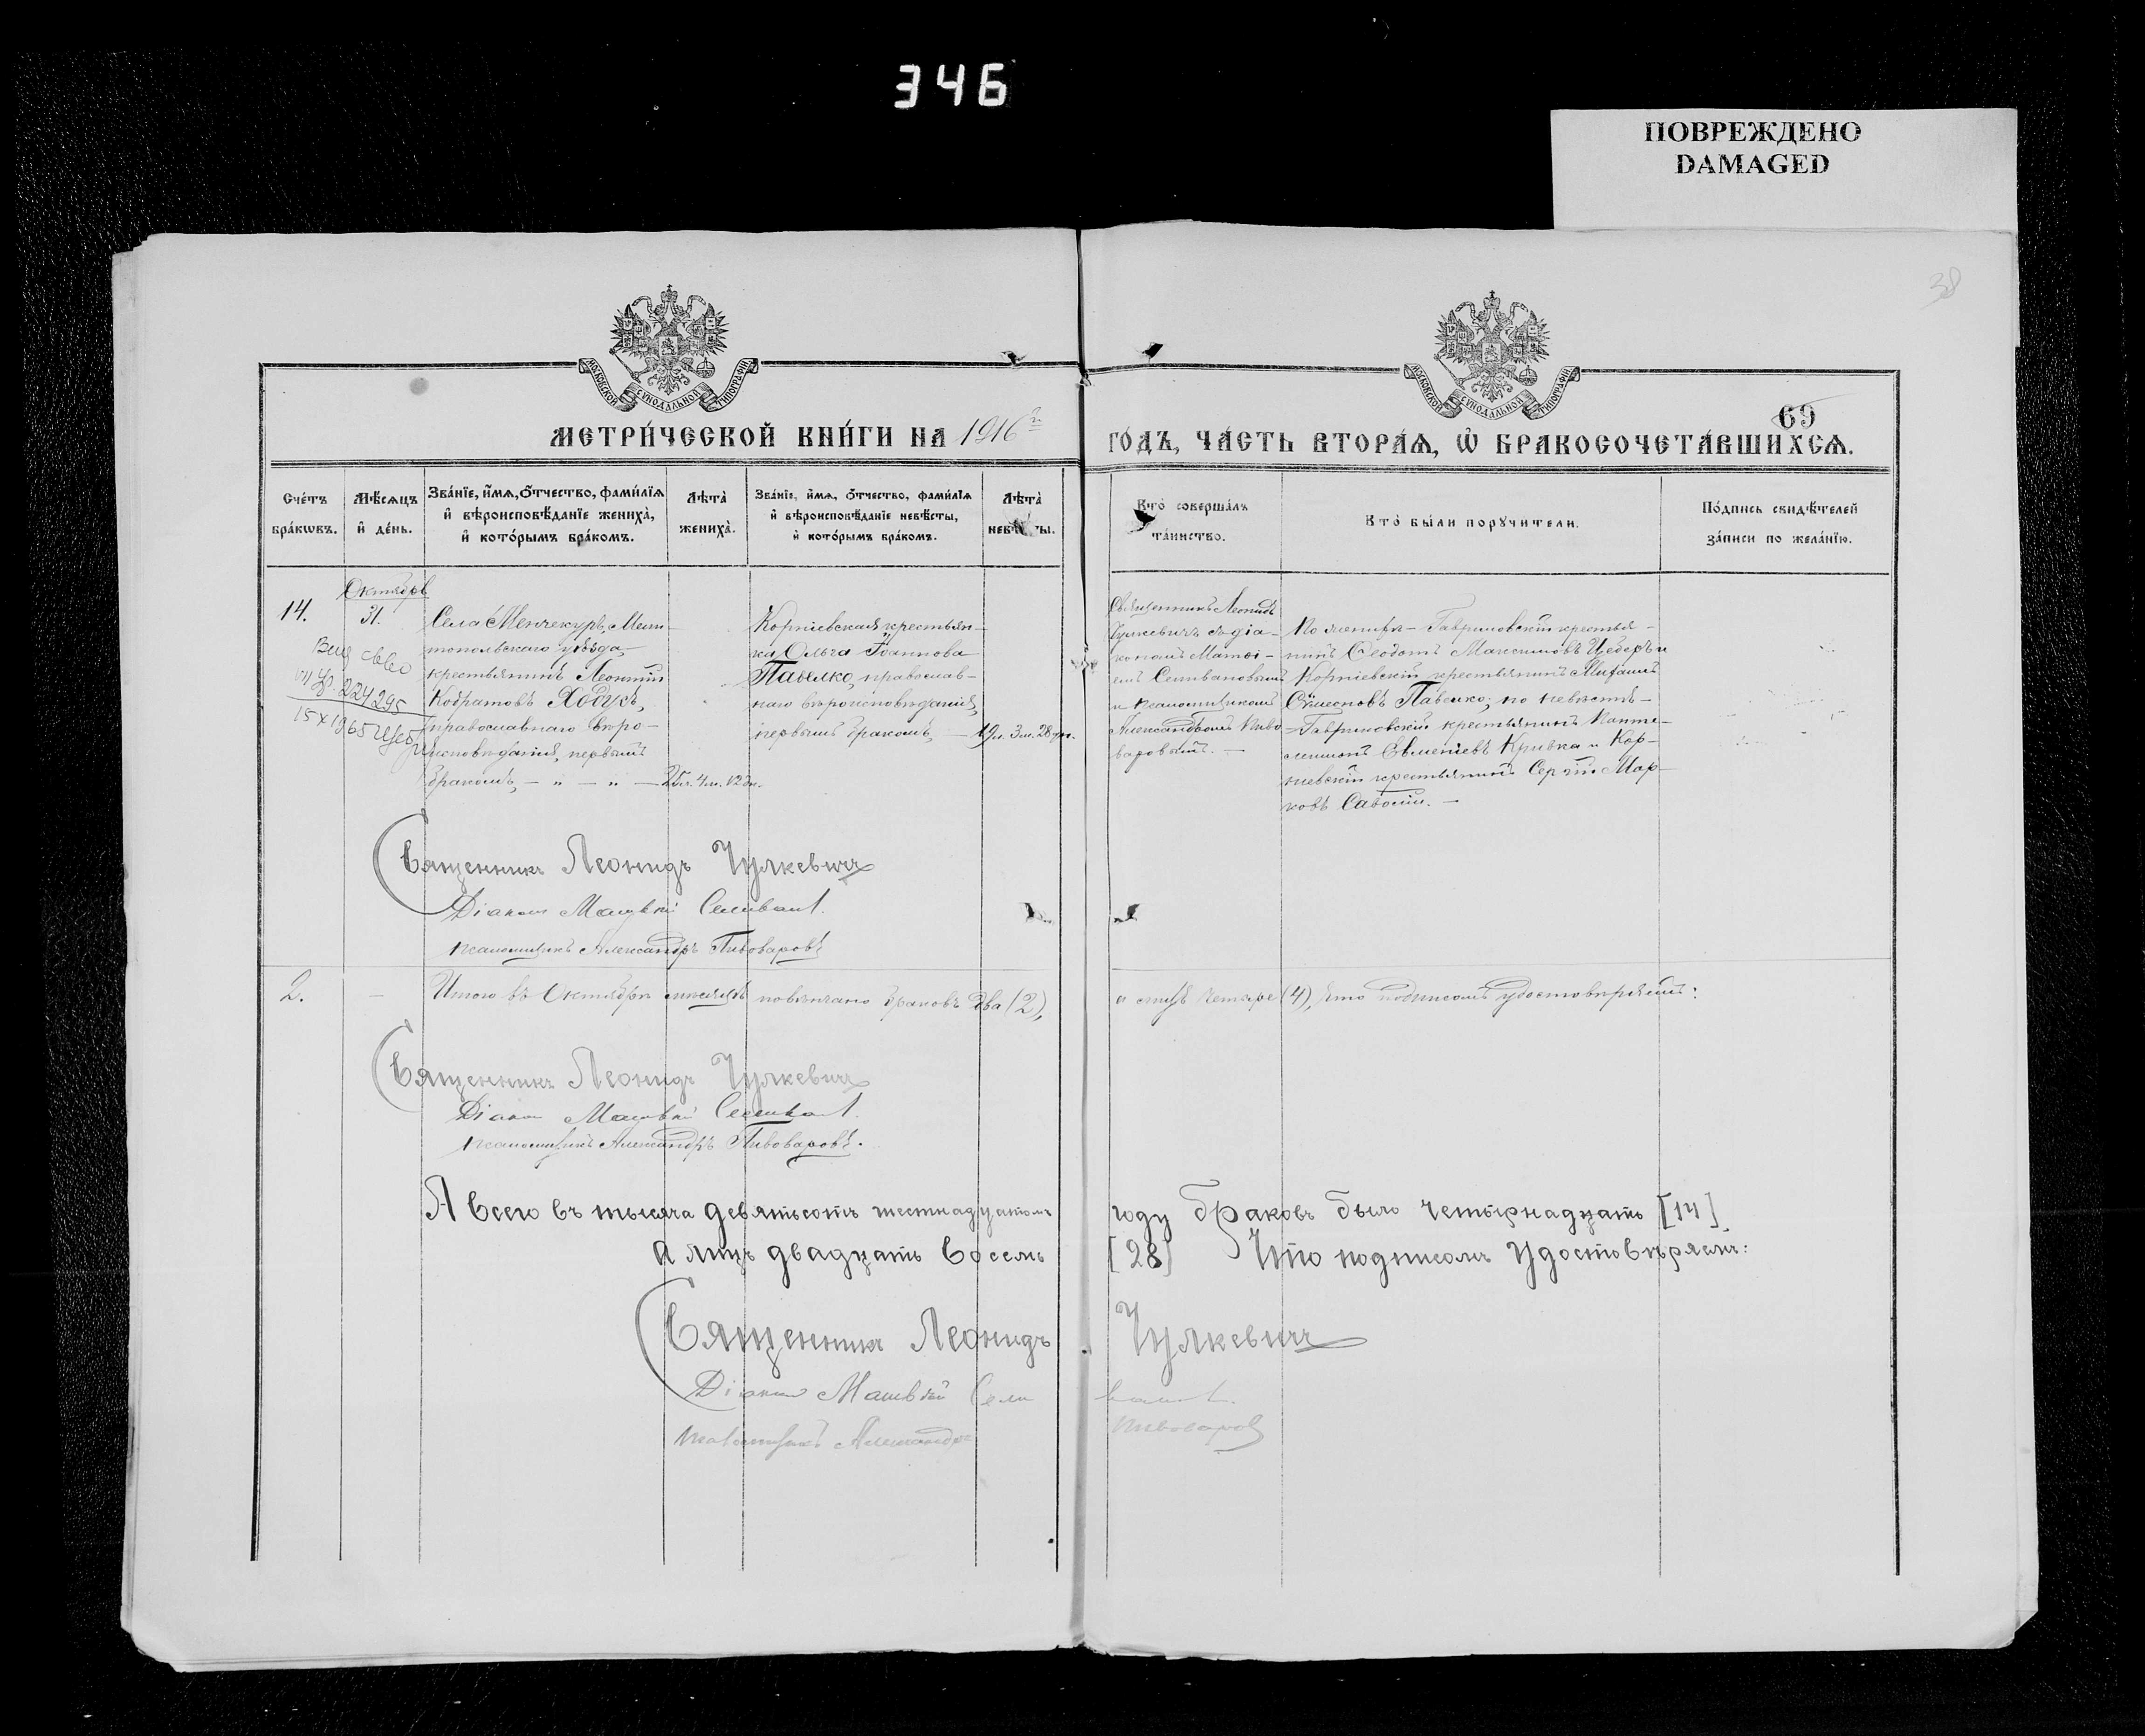 346
ПОВРЕЖДЕНО
DAMAGED
38
МОСКОВСКОЙ СУНОДАЛЬНОЙ ТИПОГРАФІИ
МОСКОВСКОЙ СУНОДАЛЬНОЙ ТИПОГРАФІИ
69
МЕТРИ́ЧЕСКОЙ КНИ́ГИ НА 1916 г.
ГО́ДЪ, ЧА́СТЬ ВТОРА́Я, Ѡ БРАКОСОЧЕТА́ВШИХСЯ.
Сче́тъ бра́кωвъ.
Мѣ́сяцъ и҆ де́нь.
Зва́нїе, и҆́мя, ѻ҆́тчество, фами́лїя и҆ вѣроисповѣ́данїе жениха̀, и҆ кото́рымъ бра́комъ.
Лѣта̀ жениха̀.
Зва́нїе, и҆́мя, ѻ҆́тчество, фами́лїя и҆ вѣроисповѣ́данїе невѣ́сты, и҆ кото́рымъ бра́комъ.
Лѣта̀ невѣ́сты.
Кто̀ соверша́лъ та́инство.
Кто̀ бы́ли порꙋчи́тели.
По́дпись свидѣ́телей за́писи по жела́нїю.
Октябрь
14.
31.
Села Менчекуръ, Мели-
топольскаго уѣзда,
крестьянинъ Леонтій
Ходукъ,
православнаго вѣро-
исповѣданія, первымъ
бракомъ, — „ — „ —
25 л. 4 м. 12 дн.
224295
15 X 1965
Корніевская крестьян-
ка Ольга Іоаннова
Павелко, православ-
наго вѣроисповѣданія,
первымъ бракомъ, —
19 л. 3 м. 28 дн.
Священникъ Леонидъ
Чулкевичъ съ діа-
кономъ Матѳі-
емъ Селивановымъ
и псаломщикомъ
Александромъ Пиво-
варовымъ. —
По женихѣ — Гавриловскій крестья-
нинъ Ѳеодотъ Максимовъ и
Корніевскій крестьянинъ
Сѵмеоновъ Павелко; по невѣстѣ —
— Гавриловскій крестьянинъ Панте-
леимонъ Кривка и Кор-
ніевскій крестьянинъ Сергій Мар-
ковъ
Священникъ Леонидъ Чулкевичъ
Діаконъ Матѳей Селиванов.
Псаломщикъ Александръ Пивоваровъ
2.
—
Итого въ Октябрѣ мѣсяцѣ повѣнчано браковъ два (2),
и лицъ четыре (4), что подписомъ удостовѣряемъ:
Священникъ Леонидъ Чулкевичъ
Діаконъ Матѳей Селиванов.
Псаломщикъ Александръ Пивоваровъ.
А всего въ тысяча девятьсотъ шестнадцатомъ
году браковъ было четырнадцать [14]
а лицъ двадцать восемь
[28] Что подписомъ удостовѣряемъ:
Священникъ Леонидъ Чулкевичъ
Діаконъ Матвѣй Селиванов.
Псаломщикъ Александръ Пивоваров